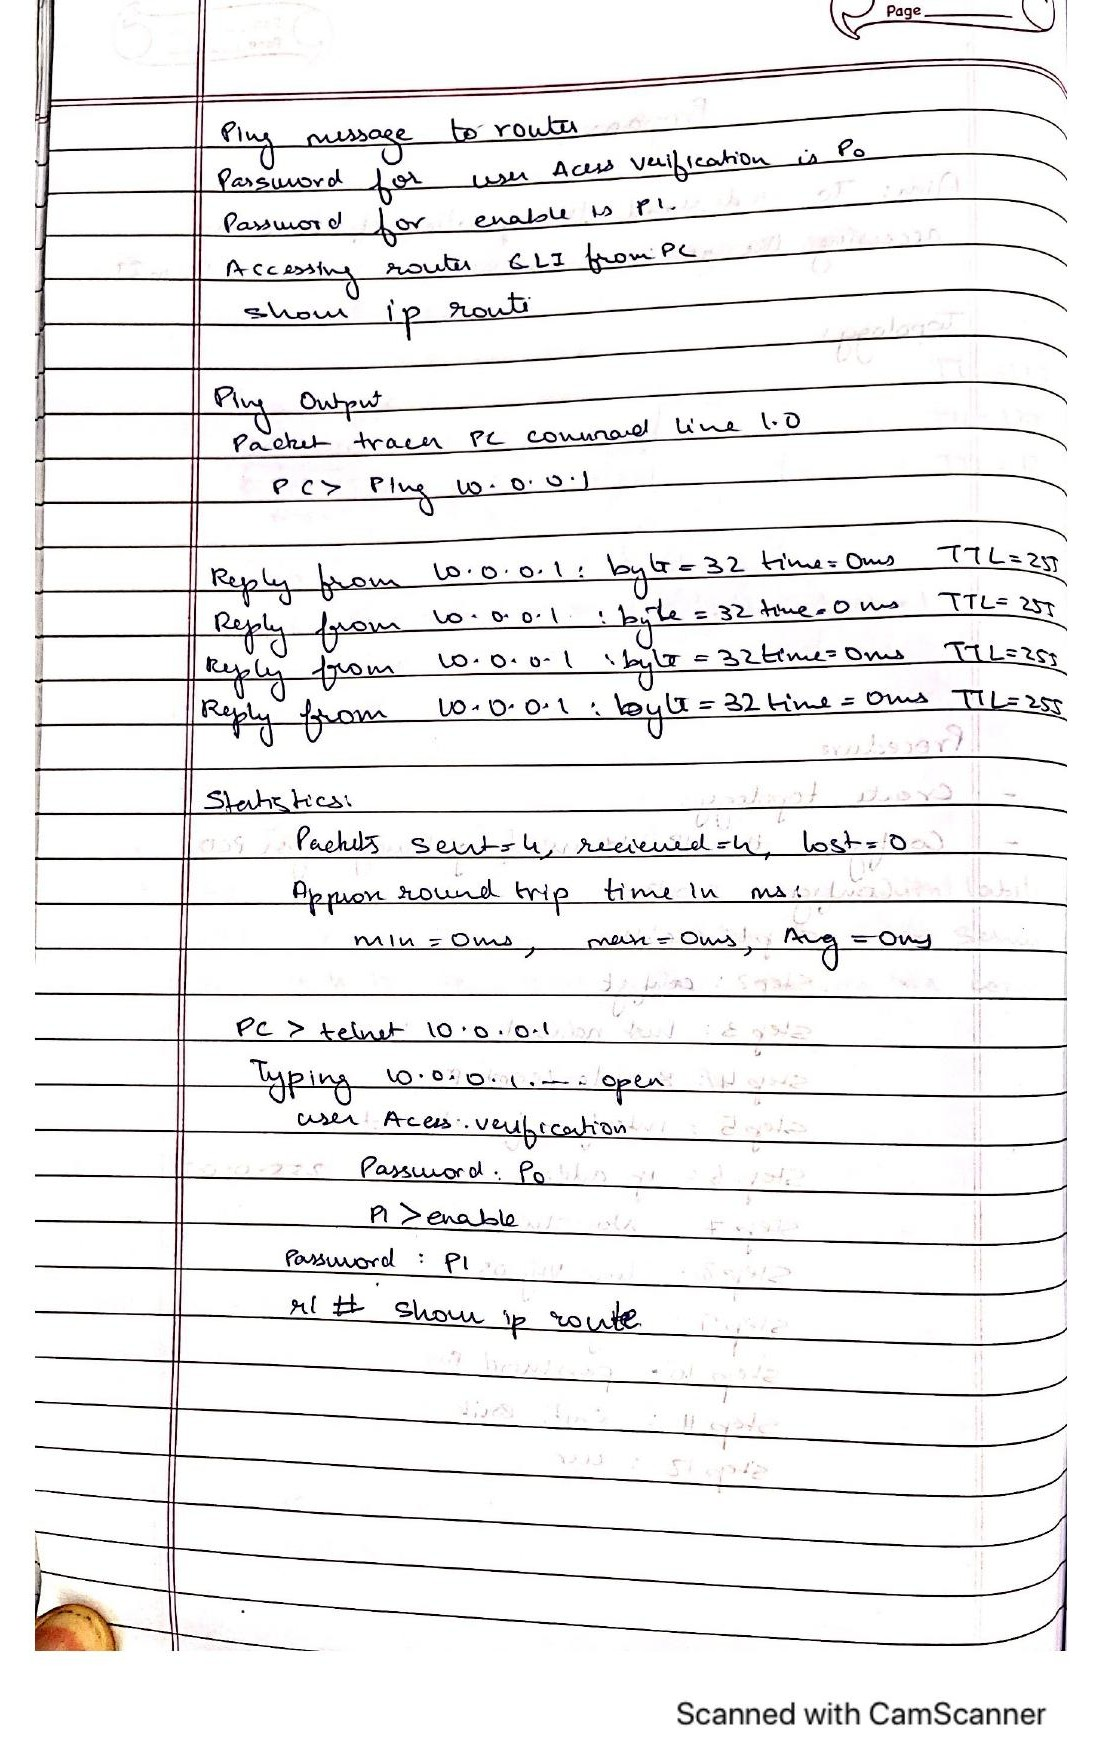 Page
Ping message to router
Password for user Acess verification is P0
Password for enable is P1.
Accessing router CLI from PC
show ip route
Ping Output
Packet tracer PC command line 1.0
PC> Ping 10.0.0.1
Reply from 10.0.0.1 : byte = 32 time = 0ms TTL=255
Reply from 10.0.0.1 : byte = 32 time = 0ms TTL=255
Reply from 10.0.0.1 : byte = 32 time = 0ms TTL=255
Reply from 10.0.0.1 : byte = 32 time = 0ms TTL=255
Statistics:
Packets sent=4, recieved=4, lost=0
Approx round trip time in ms:
min = 0ms, max = 0ms, Avg = 0ms
PC > telnet 10.0.0.1
Typing 10.0.0.1. — : open
user Acess verification
Password : P0
r1 > enable
Password : P1
r1 # show ip route
Scanned with CamScanner